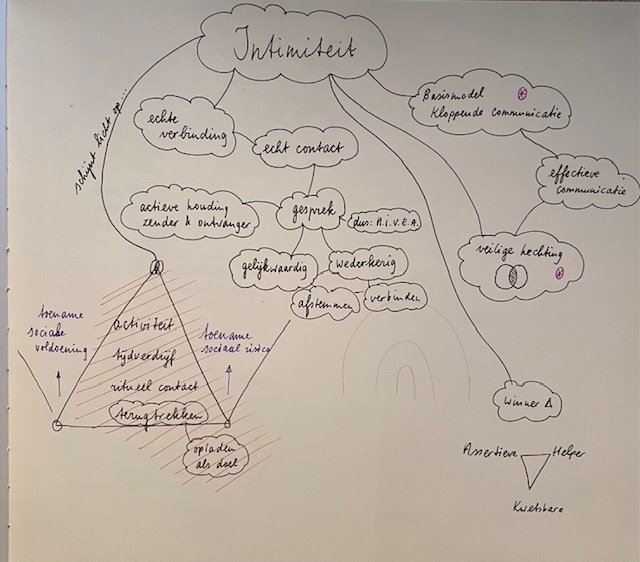 Intimiteit
schijnt licht op...
echte
verbinding
echt contact
Basismodel
Kloppende communicatie
effectieve
communicatie
actieve houding
zender & ontvanger
gesprek
dus: A.I.V.E.A.
veilige hechting
gelijkwaardig
wederkerig
afstemmen
verbinden
toename
sociale
voldoening
activiteit
tijdverdrijf
ritueel contact
terugtrekken
toename
sociaal risico
opladen
als doel
Winner Δ
Assertieve
Helper
Kwetsbare